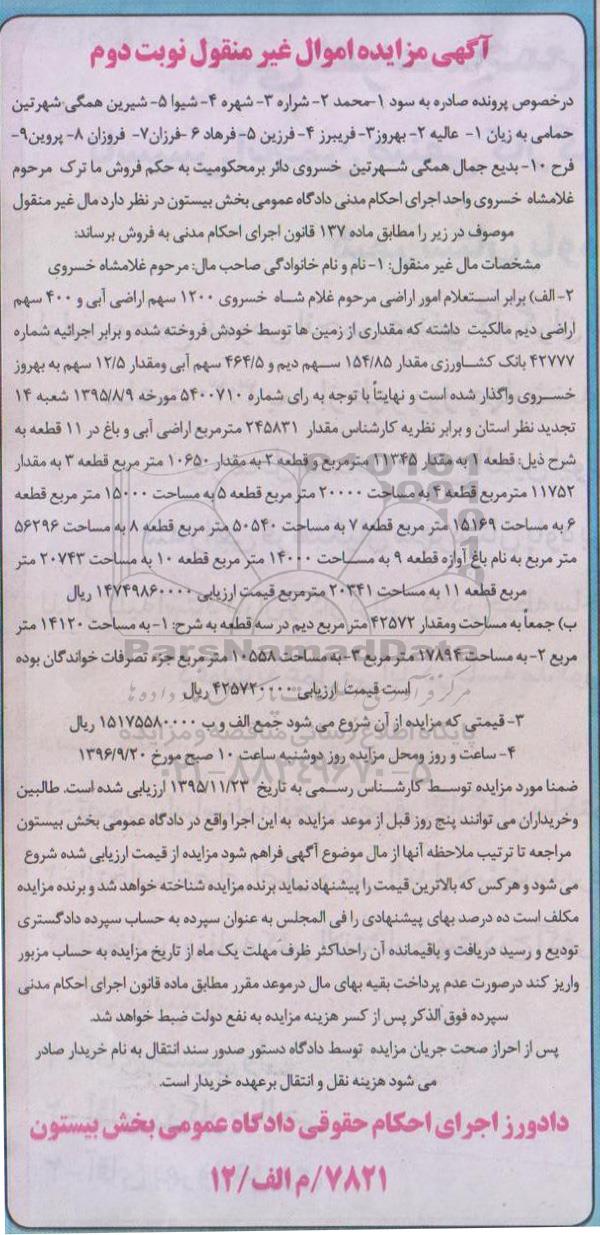 آگهی مزایده اموال غیر منقول نوبت دوم
درخصوص پرونده صادره به سود ۱-محمد ۲- شراره ۳- شهره ۴- شیوا ۵- شیرین همگی شهرتین
حمامی به زیان ۱- عالیه ۲- بهروز۳- فریبرز ۴- فرزین ۵- فرهاد ۶ -فرزان۷- فروزان ۸- پروین۹-
فرح ۱۰- بدیع جمال همگی شهرتین خسروی دائر برمحکومیت به حکم فروش ما ترک مرحوم
غلامشاه خسروی واحد اجرای احکام مدنی دادگاه عمومی بخش بیستون در نظر دارد مال غیر منقول
موصوف در زیر را مطابق ماده ۱۳۷ قانون اجرای احکام مدنی به فروش برساند:
مشخصات مال غیر منقول: ۱- نام و نام خانوادگی صاحب مال: مرحوم غلامشاه خسروی
۲- الف) برابر استعلام امور اراضی مرحوم غلام شاه خسروی ۱۲۰۰ سهم اراضی آبی و ۴۰۰ سهم
اراضی دیم مالکیت داشته که مقداری از زمین ها توسط خودش فروخته شده و برابر اجرائیه شماره
۴۲۷۷۷ بانک کشاورزی مقدار ۱۵۴/۸۵ سهم دیم و ۴۶۴/۵ سهم آبی ومقدار ۱۲/۵ سهم به بهروز
خسروی واگذار شده است و نهایتاً با توجه به رای شماره ۵۴۰۰۷۱۰ مورخه ۱۳۹۵/۸/۹ شعبه ۱۴
تجدید نظر استان و برابر نظریه کارشناس مقدار ۲۴۵۸۳۱ مترمربع اراضی آبی و باغ در ۱۱ قطعه به
شرح ذیل: قطعه ۱ به مقدار ۱۱۳۴۵ مترمربع و قطعه ۲ به مقدار ۱۰۶۵۰ متر مربع قطعه ۳ به مقدار
۱۱۷۵۲ مترمربع قطعه ۴ به مساحت ۲۰۰۰۰ متر مربع قطعه ۵ به مساحت ۱۵۰۰۰ متر مربع قطعه
۶ به مساحت ۱۵۱۶۹ متر مربع قطعه ۷ به مساحت ۵۰۵۴۰ متر مربع قطعه ۸ به مساحت ۵۶۲۹۶
متر مربع به نام باغ آوازه قطعه ۹ به مساحت ۱۴۰۰۰ متر مربع قطعه ۱۰ به مساحت ۲۰۷۴۳ متر
مربع قطعه ۱۱ به مساحت ۲۰۳۴۱ مترمربع قیمت ارزیابی ۱۴۷۴۹۸۶۰۰۰۰ ریال
ب) جمعاً به مساحت ومقدار ۴۲۵۷۲ متر مربع دیم در سه قطعه به شرح: ۱- به مساحت ۱۴۱۲۰ متر
مربع ۲- به مساحت ۱۷۸۹۴ متر مربع ۳- به مساحت ۱۰۵۵۸ متر مربع جزء تصرفات خواندگان بوده
است قیمت ارزیابی ۴۲۵۷۲۰۰۰۰ ریال
۳- قیمتی که مزایده از آن شروع می شود جمع الف و ب ۱۵۱۷۵۵۸۰۰۰۰ ریال
۴- ساعت و روز ومحل مزایده روز دوشنبه ساعت ۱۰ صبح مورخ ۱۳۹۶/۹/۲۰
ضمنا مورد مزایده توسط کارشناس رسمی به تاریخ ۱۳۹۵/۱۱/۲۳ ارزیابی شده است. طالبین
وخریداران می توانند پنج روز قبل از موعد مزایده به این اجرا واقع در دادگاه عمومی بخش بیستون
مراجعه تا ترتیب ملاحظه آنها از مال موضوع آگهی فراهم شود مزایده از قیمت ارزیابی شده شروع
می شود و هرکس که بالاترین قیمت را پیشنهاد نماید برنده مزایده شناخته خواهد شد و برنده مزایده
مکلف است ده درصد بهای پیشنهادی را فی المجلس به عنوان سپرده به حساب سپرده دادگستری
تودیع و رسید دریافت و باقیمانده آن راحداکثر ظرف مهلت یک ماه از تاریخ مزایده به حساب مزبور
واریز کند درصورت عدم پرداخت بقیه بهای مال درموعد مقرر مطابق ماده قانون اجرای احکام مدنی
سپرده فوق الذکر پس از کسر هزینه مزایده به نفع دولت ضبط خواهد شد.
پس از احراز صحت جریان مزایده توسط دادگاه دستور صدور سند انتقال به نام خریدار صادر
می شود هزینه نقل و انتقال برعهده خریدار است.
دادورز اجرای احکام حقوقی دادگاه عمومی بخش بیستون
۷۸۲۱/م الف/۱۲
ParsNamadData
پایگاه اطلاع رسانی مناقصه و مزایده
۰۲۱-۸۸۳۴۹۶۷۰-۵